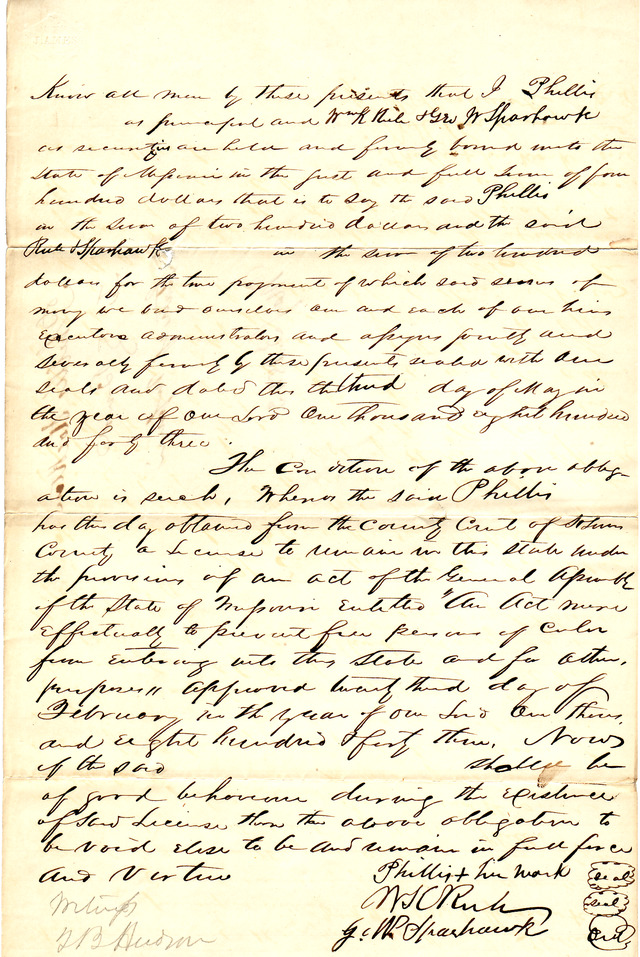 Know all men by these presents that I Phillis
as principal and Wm K Rule & Geo W Sparhawk
as securities are held and firmly bound unto the
State of Missouri in the just and full sum of four
hundred dollars that is to say the said Phillis
in the sum of two hundred dollars and the said
Rule & Sparhawk in the sum of two hundred
dollars for the true payment of which said sums of
money we bind ourselves our and each of our heirs
Executors administrators and assigns jointly and
severally firmly by these presents sealed with our
seals and dated this the third day of May in
the year of our Lord One thousand eight hundred
and forty three.
The Condition of the above oblig-
ation is such, Whereas the said Phillis
has this day obtained from the County Court of St Louis
County a License to remain in this state under
the provisions of an act of the General Assembly
of the State of Missouri Entitled "An Act more
Effectually to prevent free persons of Color
from Entering into this State and for other
purposes" approved twenty third day of
February in the year of our Lord One thous.
and Eight hundred & forty three. Now
if the said shall be
of good behaviour during the Existence
of said License then the above obligation to
be void Else to be and remain in full force
and virtue
Phillis + her mark seal
Rule seal
Geo W Sparhawk seal
Witness
Hudson